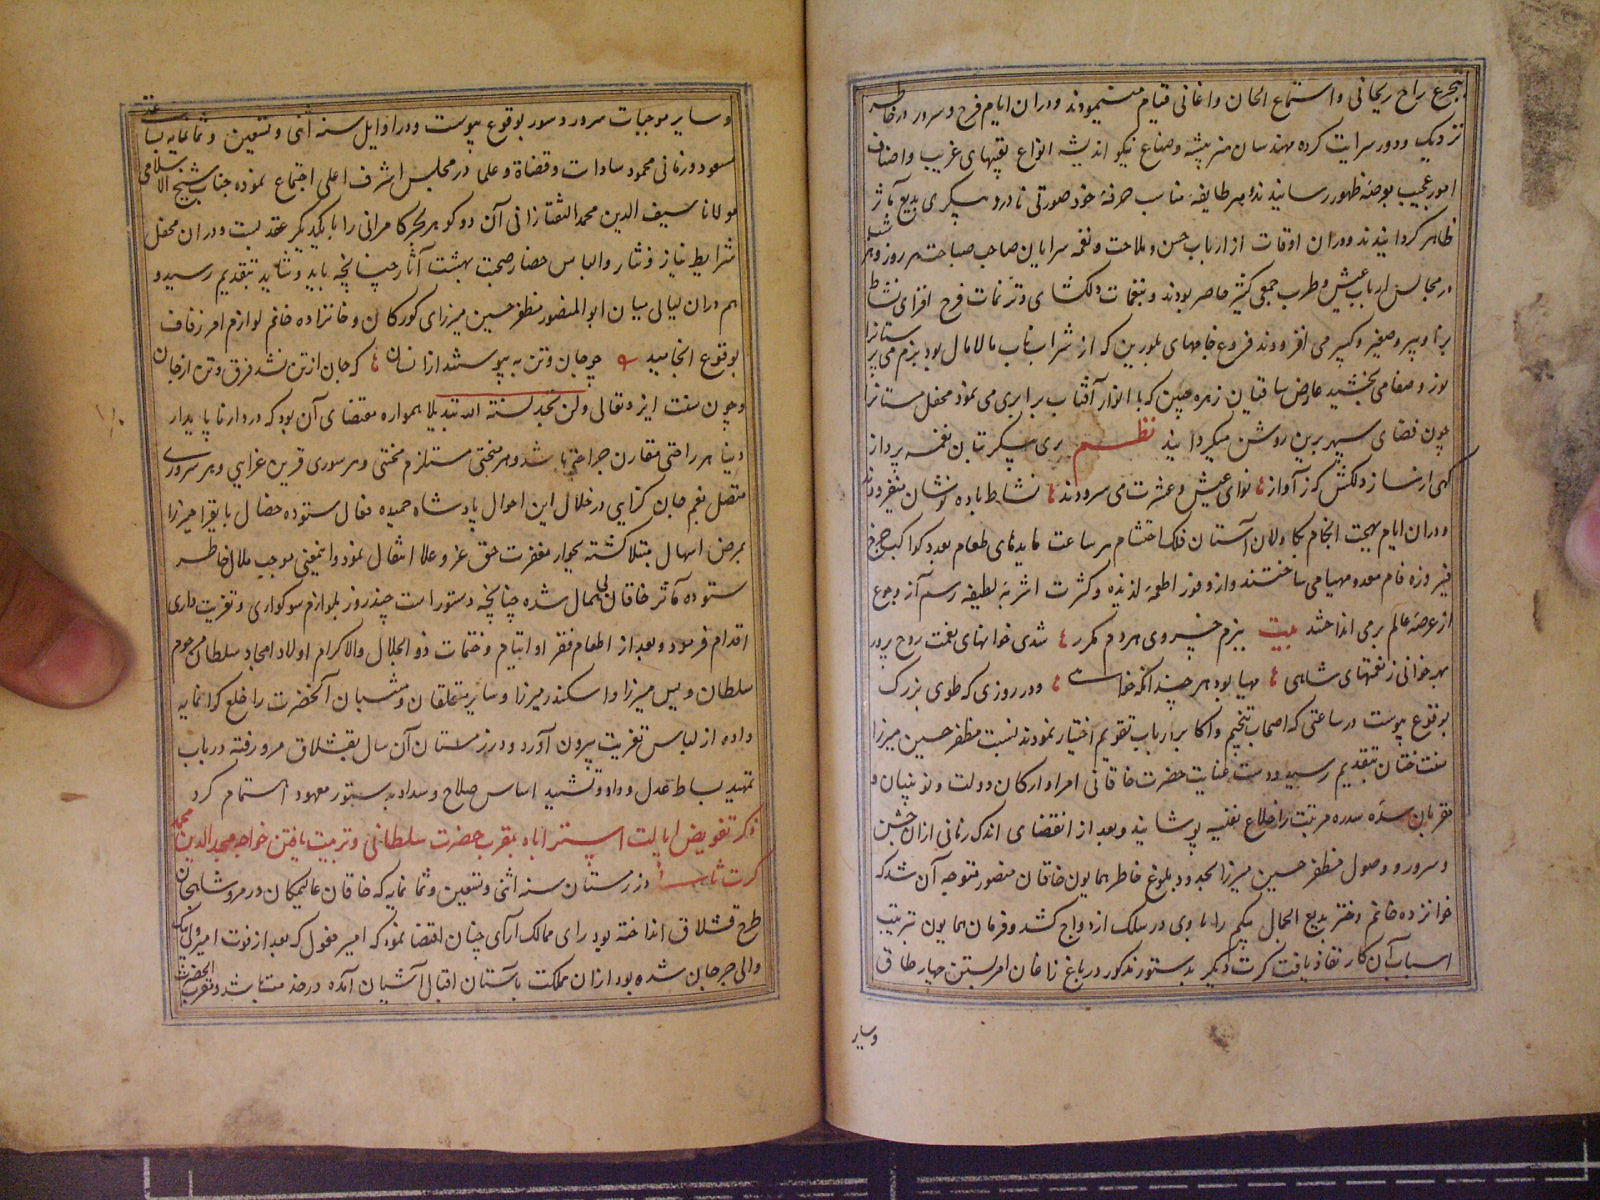 بتجرع راح ریحانی و استماع الحان و اغانی قیام مینمودند و در ان ایام فرح و سرور در خاطر
نزدیک و دور سرایت کرده مهندسان هنر پیشه و صناع نیکو اندیشه انواع تعبیهای غریب و اصناف
امور عجیب بعرصهٔ ظهور رسانیدند و هر طایفه مناسب حرفهٔ خود صورتی نادر و پیکری بدیع مآثر
ظاهر گردانیدند و در ان اوقات از ارباب حسن و ملاحت و نغمه سرایان صاحب صباحت هر روز و هر شب
در مجالس ارباب عیش و طرب جمعی کثیر حاضر بودند و بنغمات دلگشای و ترنمات فرح افزای نشاط
برنا و پیر و صغیر و کبیر می افزودند فروغ جامهای بلورین که از شراب ناب مالامال بود بزم می پرستانرا
نور و صفا می بخشید عارض ساقیان زهره جبین که با انوار آفتاب برابری می نمود محفل مستانرا
چون فضای سپهر برین روشن میگردانید نظم پری پیکر بتان نغمه پرداز
گهی از ساز دلکش که ز آواز نوای عیش و عشرت می سرودند نشاط باده نوشان میفزودند
و دران ایام بهجت انجام بکاولان آستان فلک احتشام هر ساعت مایدهای طعام بعدد کواکب چرخ
فیروزه فام معد و مهیا می ساختند و از وفور اطعمهٔ لذیذه و کثرت اشربهٔ لطیفه رسم آز و جوع
از عرصهٔ عالم بر می انداختند بیت ببزم خسروی هر دم مکرر شدی خوانهای نعمت روح پرور
بهر خوانی ز نعمتهای شاهی مهیا بود هر چند انکه خواهی و در روزی که طوی بزرک
بوقوع پیوست در ساعتی که اصحاب تنجیم و اکابر ارباب تقویم اختیار نمودند نسبت مظفر حسین میرزا
سنت ختان بتقدیم رسید و دست عنایت حضرت خاقانی امرا و ارکان دولت و نوینیان و
مقربان سدهٔ سدره مرتبت را خلاع نفیسه پوشانید و بعد از انقضای اندک زمانی ازان جشن
و سرور و وصول مظفر حسین میرزا بحدود بلوغ خاطر همایون خاقان منصور متوجه آن شد که
خوانزده خانم دختر بدیع الجمال بیگم را با وی در سلک ازدواج کشد و فرمان همایون بترتیب
اسباب آن کار نفاذ یافت کرت دیگر بدستور مذکور در باغ زاغان امر بستن چهار طاق
وسایر
و سایر موجبات سرور و سور بوقوع پیوست و در اوایل سنه اثنی و تسعین و ثمانمایه بساعتی
مسعود و زمانی محمود سادات و قضاة و علما در مجلس اشرف اعلی اجتماع نموده جناب شیخ الاسلامی
مولانا سیف الدین محمد التفتازانی آن دو گوهر بحر کامرانی را با یکدیگر عقد بست و در ان محفل
شرایط نیاز و نثار و الباس حضار صحبت بهشت آثار چنانچه باید و شاید بتقدیم رسید و
هم دران لیالی میان ابوالمنصور مظفر حسین میرزای کورکان و خانزاده خانم لوازم امر زفاف
بوقوع انجامید چو جان و تن به پیوستند ازانسان که جان از تن نشد فرق و تن از جان
و چون سنت ایزد تعالی و لن تجد لسنة الله تبدیلا همواره مقتضای آن بود که در دار ناپایدار
دنیا هر راحتی مقارن جراحتی باشد و هر منحتی مستلزم محنتی و هر سوری قرین عزایی و هر سروری
متصل بغم جان گزایی در خلال این احوال پادشاه حمیده فعال ستوده خصال بایقرا میرزا
بمرض اسهال مبتلا گشته بجوار مغفرت حق عز و علا انتقال نمود و اینمعنی موجب ملال خاطر
ستوده مآثر خاقان بی همال شده چنانچه دستور است چند روز بلوازم سوکواری و تعزیت داری
اقدام فرمود و بعد از اطعام فقرا و ایتام و ختمات ذو الجلال والاکرام اولاد امجاد سلطان مرحوم
سلطان ویس میرزا و اسکندر میرزا و سایر متعلقان و منتسبان آنحضرت را خلع گرانمایه
داده از لباس تعزیت بیرون آورد و در زمستان آن سال بقشلاق مرو رفته در باب
تمهید بساط عدل و داد و تشیید اساس صلاح و سداد بدستور معهود اهتمام کرد
ذکر تفویض ایالت استراباد بمقرب حضرت سلطانی و تربیت یافتن خواجه مجد الدین محمد
کرت ثانی در زمستان سنه اثنی و تسعین و ثمانمایه که خاقان عالیمکان در مرو شاهیجان
طرح قشلاق انداخته بود رای ممالک آرای چنان اقتضا نمود که امیر مغول که بعد از فوت امیر ولی بیک
والی جرجان شده بود ازان مملکت بآستان اقبال آشیان آمده در خدمت باشد و مقرب الحضرت